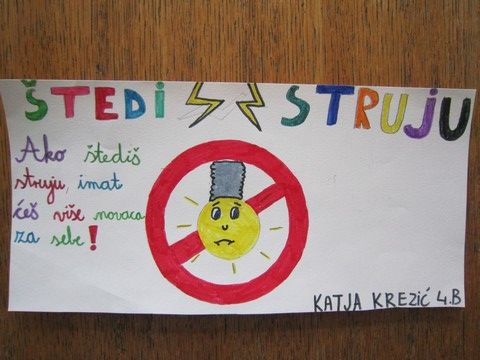 ŠTEDI STRUJU
Ako štediš
struju, imat
ćeš više novaca
za sebe!
KATJA KREZIĆ 4.B